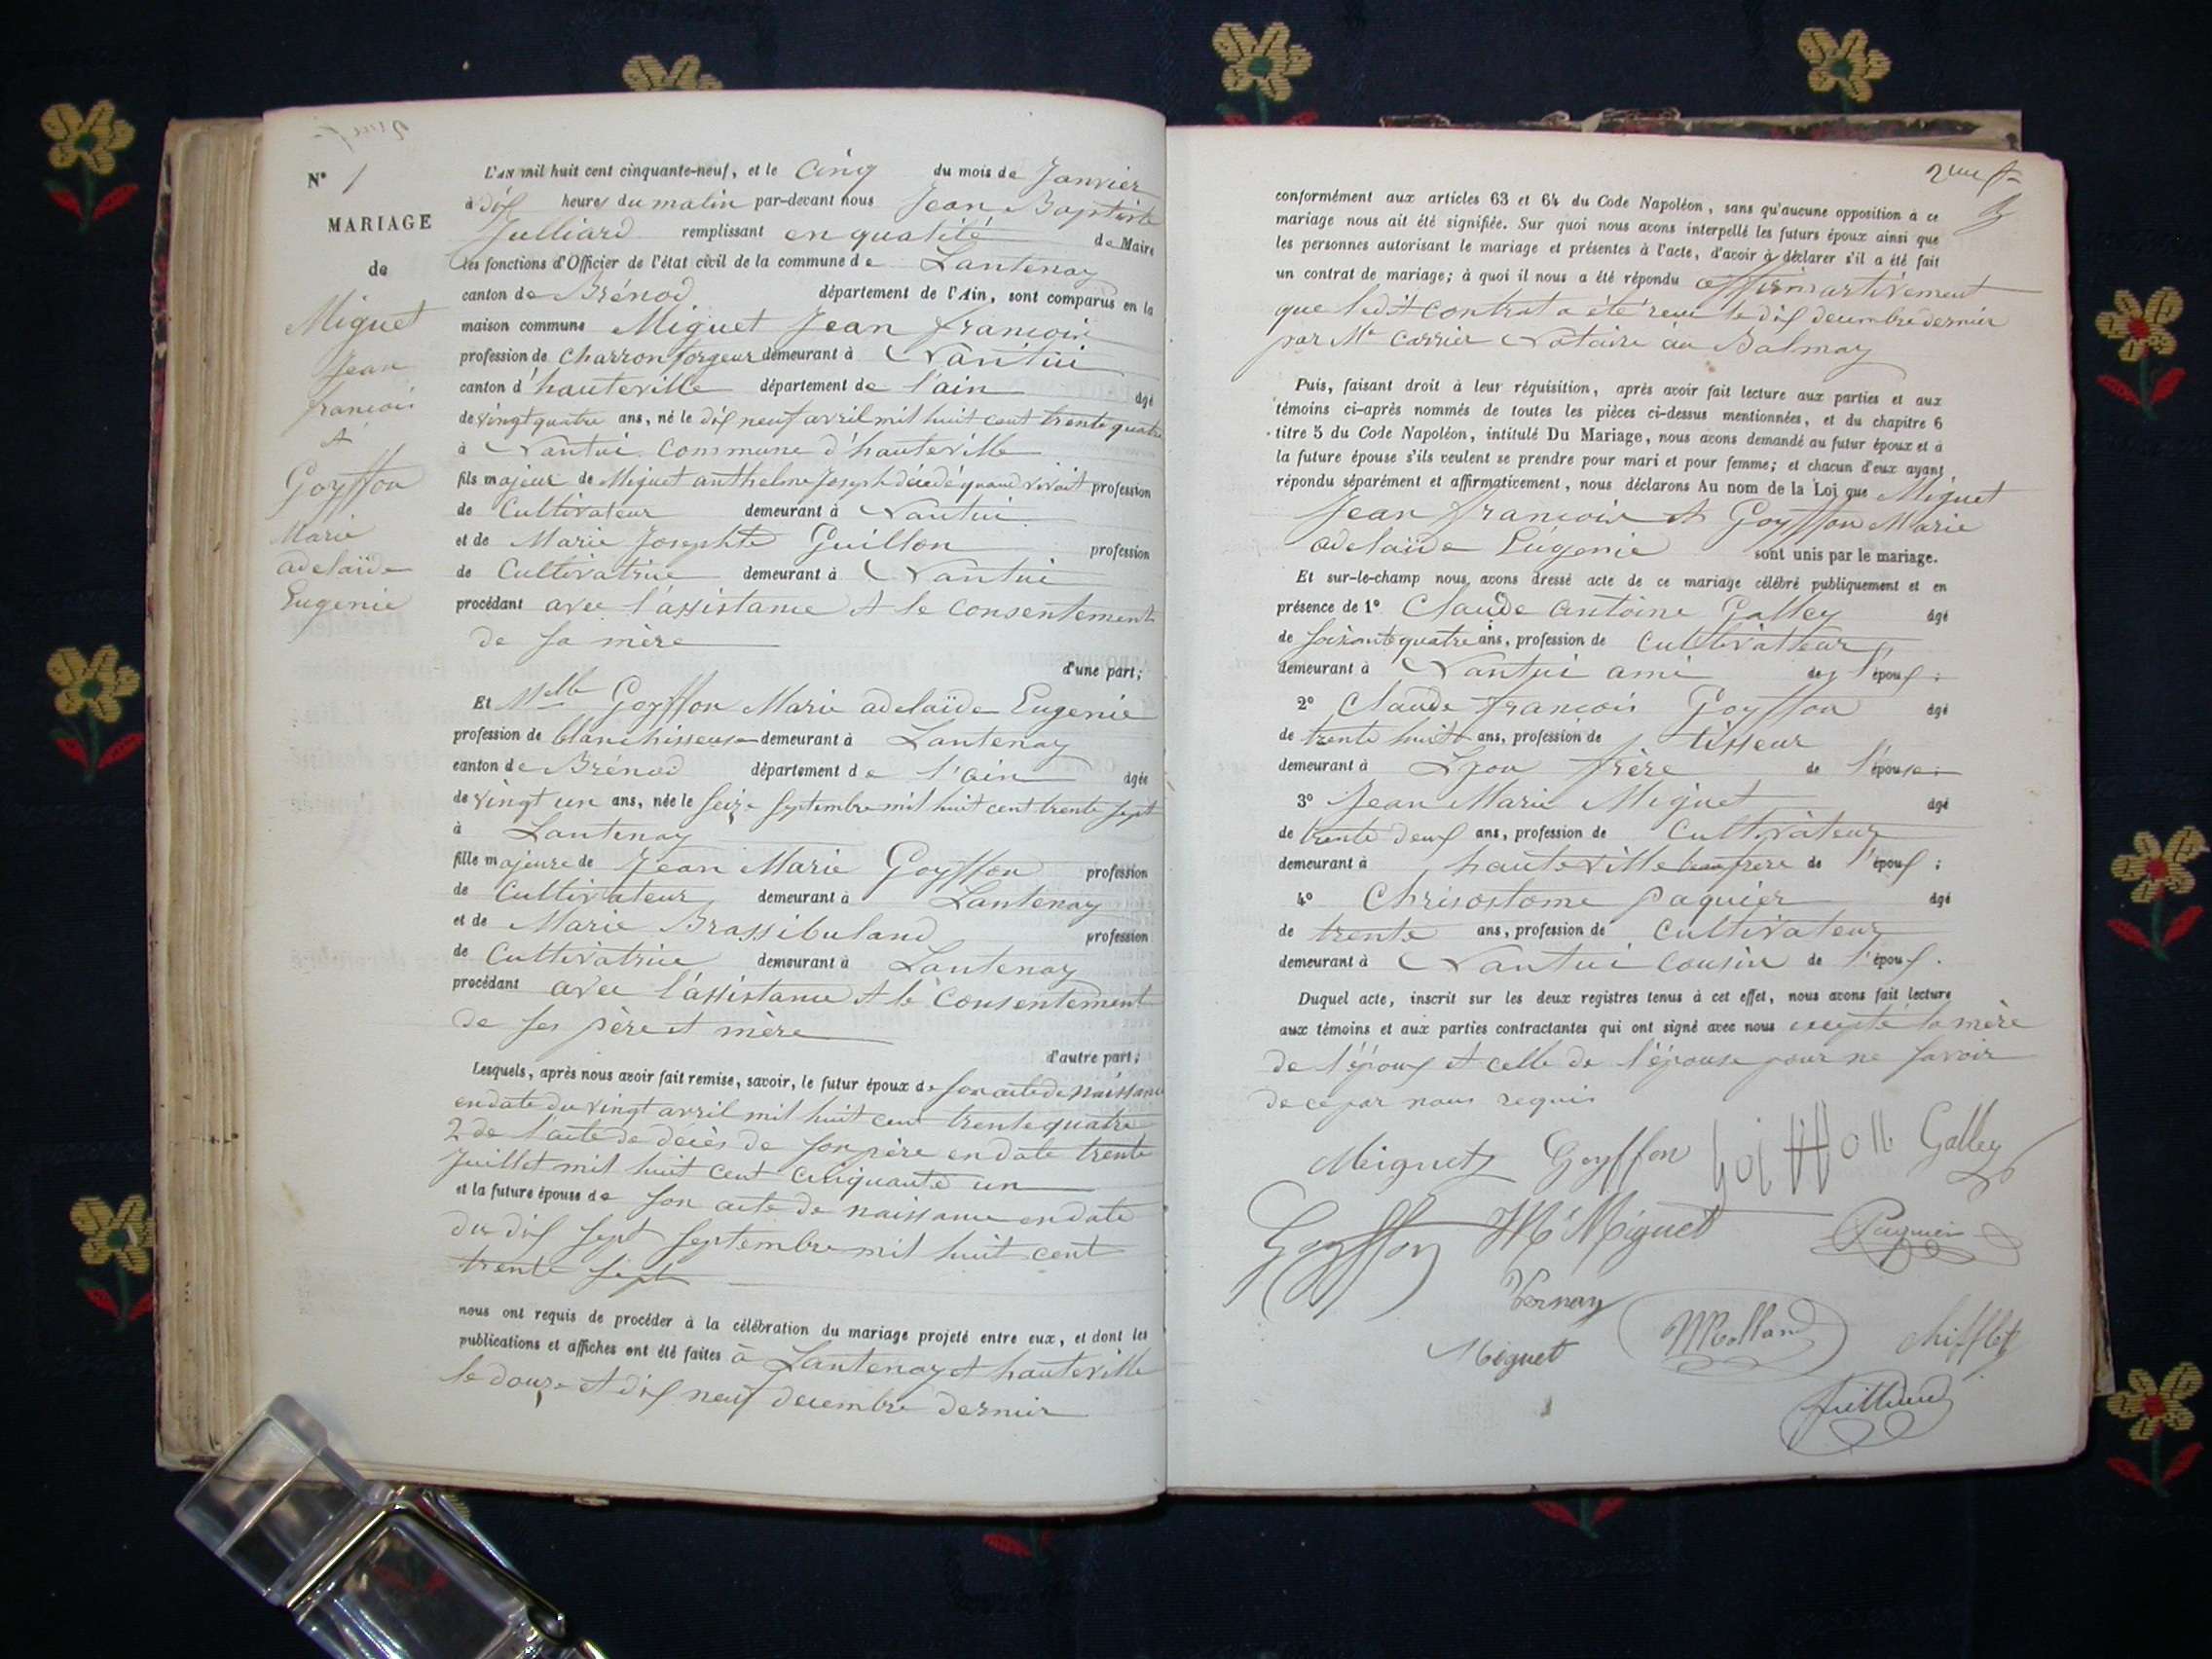 N° 1
MARIAGE
de
Miguet
Jean
françois
et
Goyffon
Marie
adelaïde
Eugenie
L'AN mil huit cent cinquante-neuf, et le Cinq du mois de Janvier
à dix heures du matin par-devant nous Jean Baptiste
Julliard remplissant en qualité de Maire
les fonctions d'Officier de l'état civil de la commune de Lantenay
canton de Brénod département de l'Ain, sont comparus en la
maison commune Miguet Jean françois
profession de Charron forgeur demeurant à Nantui
canton d'hauteville département de l'ain âgé
de vingt quatre ans, né le dix neuf avril mil huit cent trente quatre
à Nantui commune d'hauteville
fils majeur de Miguet anthelme Joseph décédé quand vivait profession
de Cultivateur demeurant à Nantui
et de Marie Josephte Guillon profession
de Cultivatrice demeurant à Nantui
procédant avec l'assistance et le consentement
de sa mère
d'une part;
Et Melle Goyffon Marie adelaïde Eugenie
profession de blanchisseuse demeurant à Lantenay
canton de Brénod département de l'ain âgée
de vingt un ans, née le seize septembre mil huit cent trente sept
à Lantenay
fille majeure de Jean Marie Goyffon profession
de Cultivateur demeurant à Lantenay
et de Marie Brassibuland profession
de Cultivatrice demeurant à Lantenay
procédant avec l'assistance et le consentement
de ses père et mère
d'autre part;
Lesquels, après nous avoir fait remise, savoir, le futur époux de son acte de naissance
en date du vingt avril mil huit cent trente quatre
2 de l'acte de décès de son père en date trente
Juillet mil huit cent cinquante un
et la future épouse de son acte de naissance en date
du dix sept septembre mil huit cent
trente sept
nous ont requis de procéder à la célébration du mariage projeté entre eux, et dont les
publications et affiches ont été faites à Lantenay et hauteville
le douze et dix neuf decembre dernier
conformément aux articles 63 et 64 du Code Napoléon, sans qu'aucune opposition à ce
mariage nous ait été signifiée. Sur quoi nous avons interpellé les futurs époux ainsi que
les personnes autorisant le mariage et présentes à l'acte, d'avoir à déclarer s'il a été fait
un contrat de mariage; à quoi il nous a été répondu affirmativement
que ledit contrat a été reçu le dix decembre dernier
par Me Carrier Notaire au Balmay
Puis, faisant droit à leur réquisition, après avoir fait lecture aux parties et aux
témoins ci-après nommés de toutes les pièces ci-dessus mentionnées, et du chapitre 6
titre 5 du Code Napoléon, intitulé Du Mariage, nous avons demandé au futur époux et à
la future épouse s'ils veulent se prendre pour mari et pour femme; et chacun d'eux ayant
répondu séparément et affirmativement, nous déclarons Au nom de la Loi que Miguet
Jean françois et Goyffon Marie
adelaïde Eugenie sont unis par le mariage.
Et sur-le-champ nous avons dressé acte de ce mariage célébré publiquement et en
présence de 1° Claude Antoine Galley âgé
de soixante quatre ans, profession de Cultivateur
demeurant à Nantui ami de l'époux;
2° Claude françois Goyffon âgé
de trente huit ans, profession de tisseur
demeurant à Lyon frère de l'épouse;
3° Jean Marie Miguet âgé
de trente deux ans, profession de Cultivateur
demeurant à hauteville beaufrere de l'époux;
4° Chrisostome paquier âgé
de trente ans, profession de Cultivateur
demeurant à Nantui cousin de l'époux.
Duquel acte, inscrit sur les deux registres tenus à cet effet, nous avons fait lecture
aux témoins et aux parties contractantes qui ont signé avec nous excepté la mère
de l'époux et celle de l'épouse pour ne savoir
de ce par nous requis
Miguet Goyffon goiffon Galley
Goyffon M Miguet Paquier
Vernay
Miguet Molland Chifflet
Julliard